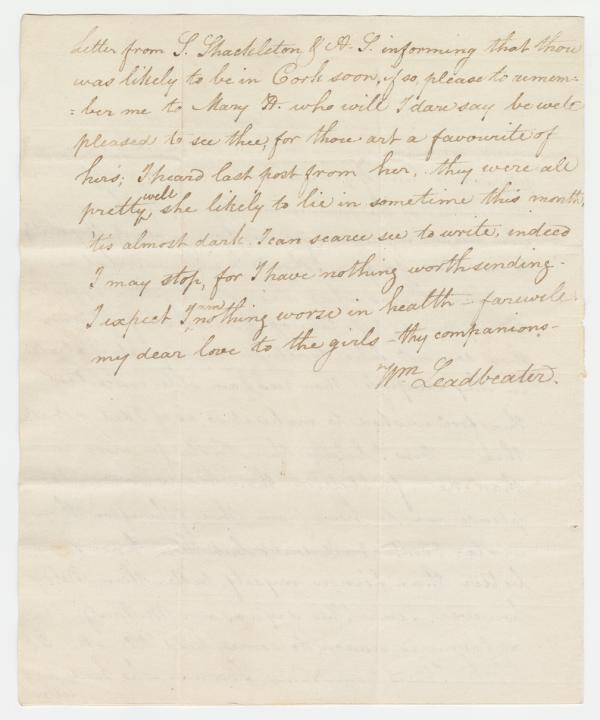 Letter from S. Shackleton & A. S. informing that thou
was likely to be in Cork soon, if so, please to remem=
=ber me to Mary H. who will I dare say be well
pleased to see thee, for thou art a favourite of
hers; I heard last post from her, they were all
pretty well, she likely to lie in sometime this month,
'tis almost dark I can scarce see to write, indeed
I may stop, for I have nothing worth sending -
I expect I am nothing worse in health - farewell
my dear love to the girls - thy companions -
Wm Leadbeater.